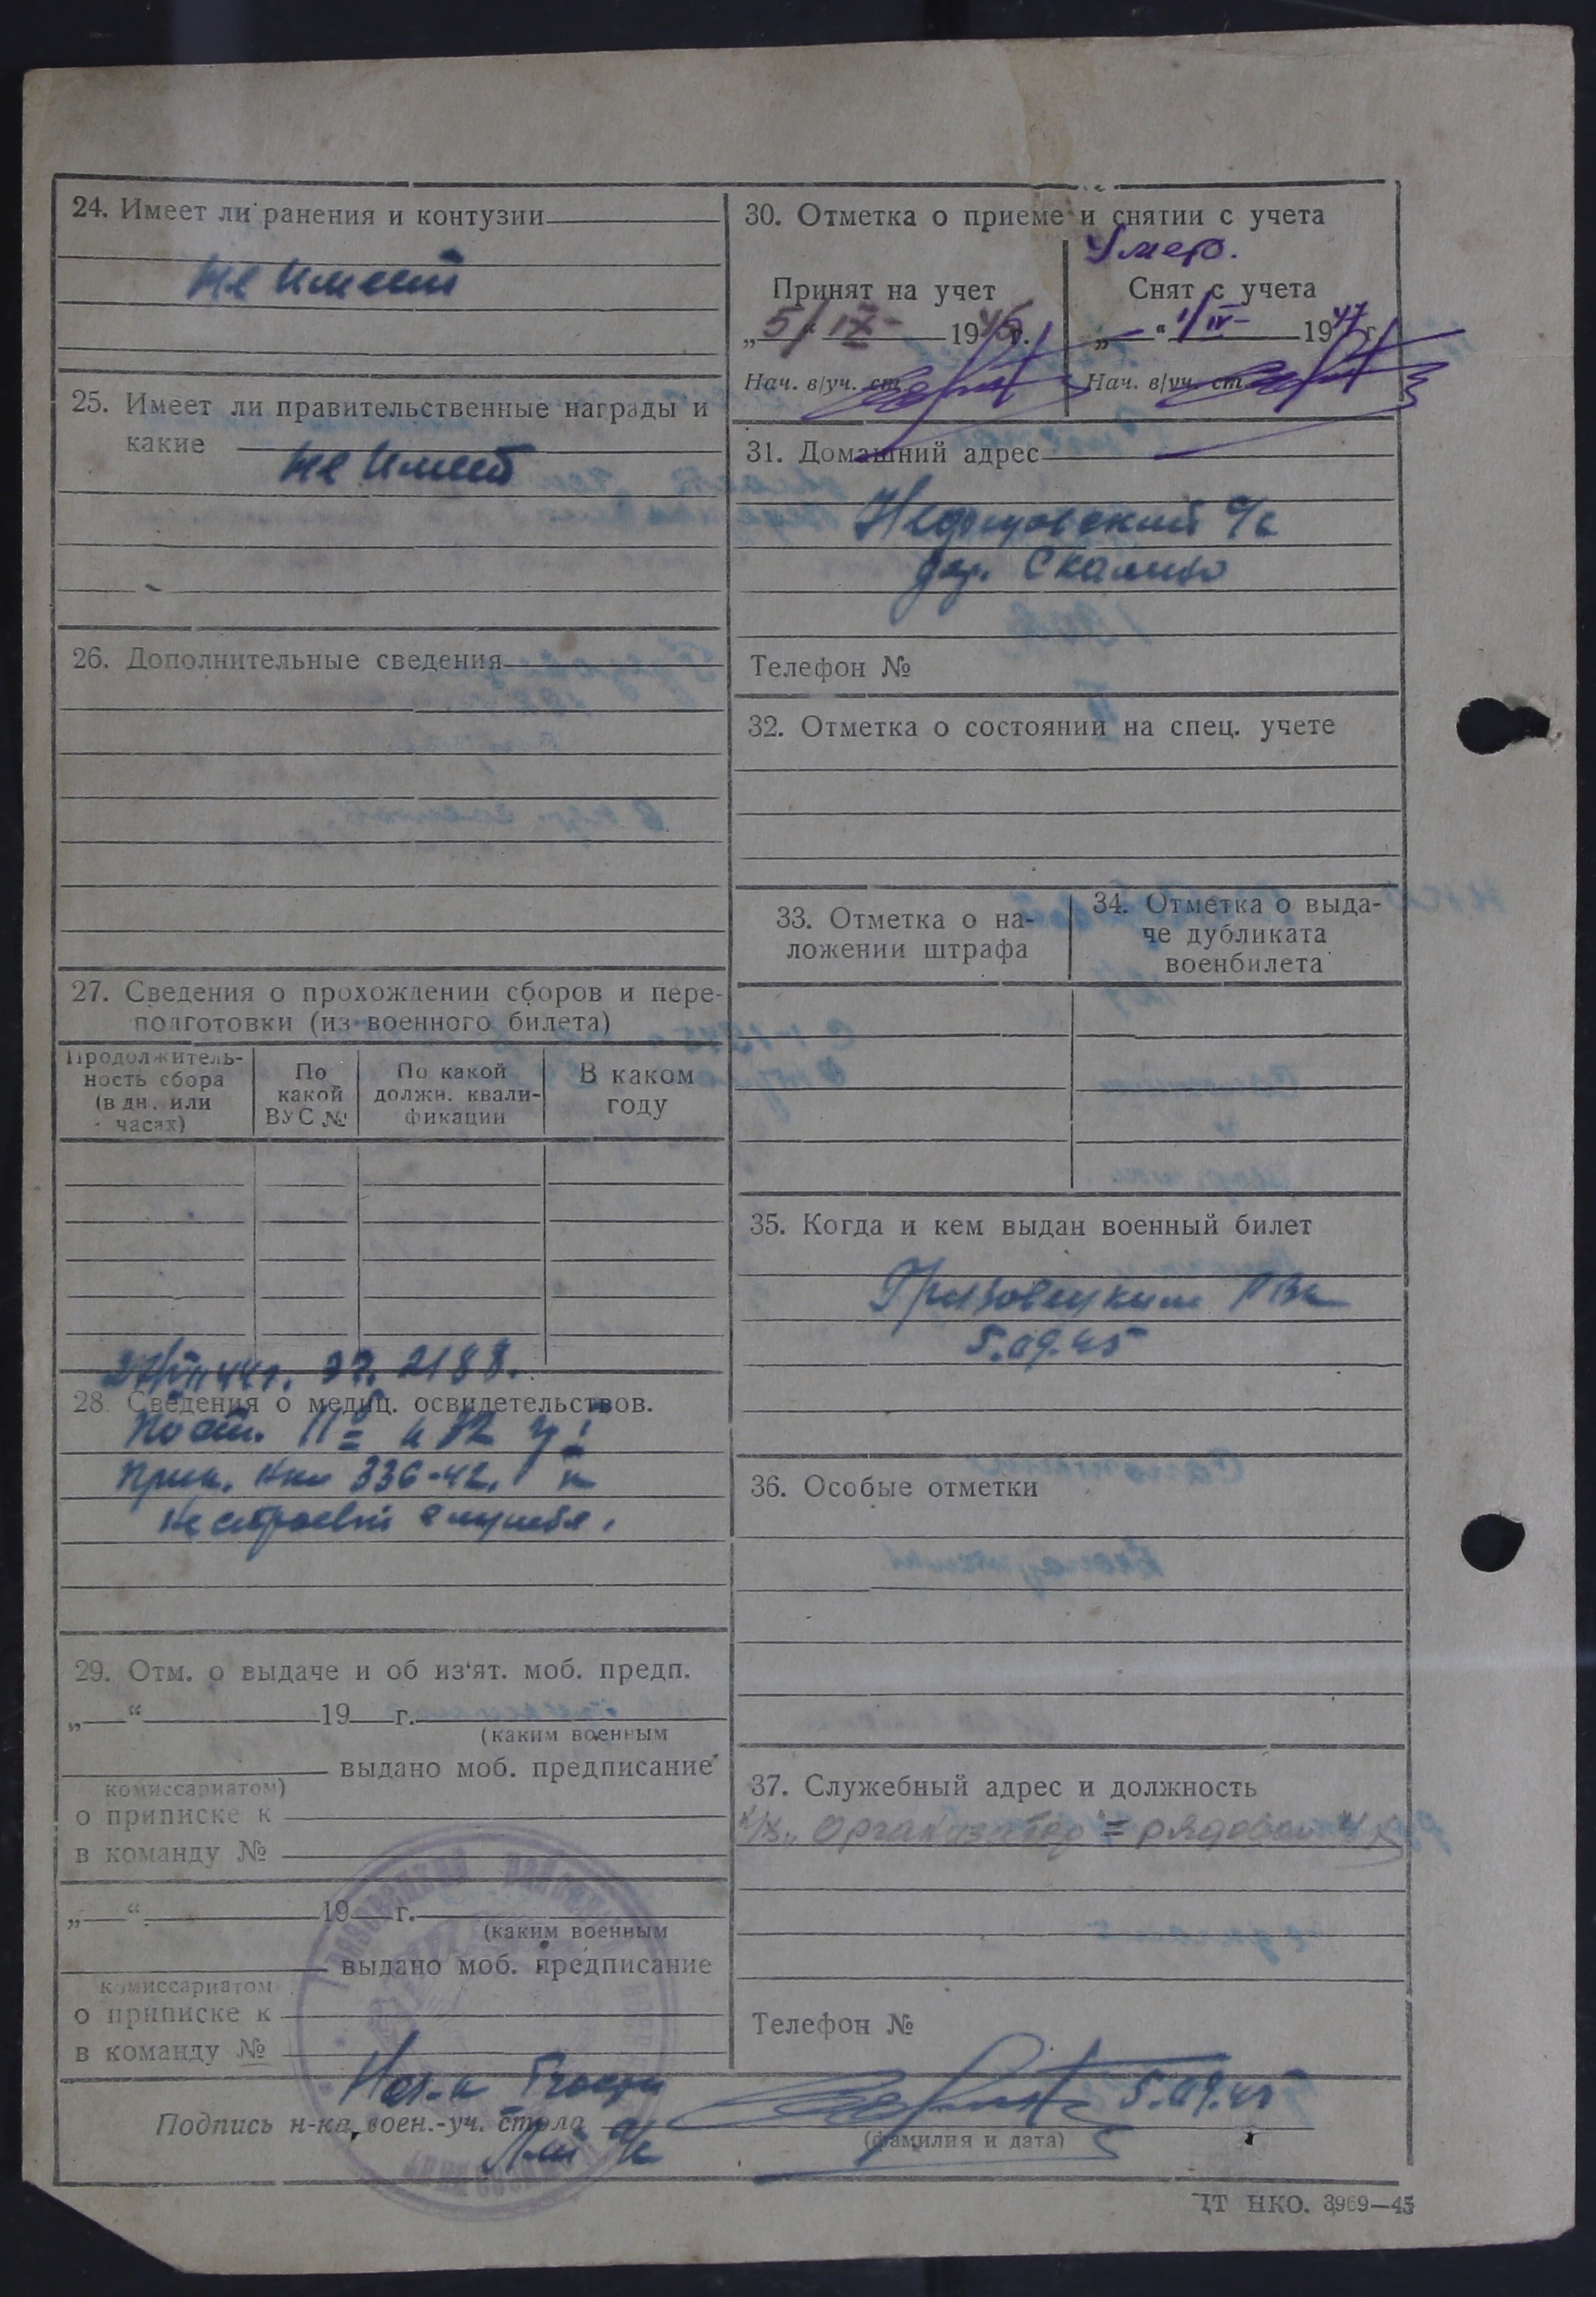 24. Имеет ли ранения и контузии
Не имеет
25. Имеет ли правительственные награды и
какие
Не имеет
26. Дополнительные сведения
27. Сведения о прохождении сборов и пере-
подготовки (из военного билета)
Продолжитель-
ность сбора
(в дн. или
часах)
По
какой
ВУС №
По какой
должн. квали-
фикации
В каком
году
27/VII 44г. 2188.
28. Сведения о медиц. освидетельствов.
По ст.
Прик. НКО 336-42. к
нестроевой службе.
29. Отм. о выдаче и об из‘ят. моб. предп.
„ “ 19 г.
(каким военным
выдано моб. предписание
комиссариатом)
о приписке к
в команду №
„ “ 19 г.
(каким военным
выдано моб. предписание
комиссариатом
о приписке к
в команду №
30. Отметка о приеме и снятии с учета
Умер.
Принят на учет
„5“ IX 1945г.
Нач. в/уч. ст.
Снят с учета
„ “ 1/IV- 1947 г
Нач. в/уч. ст.
31. Домашний адрес
с/с
дер. Скалино
Телефон №
32. Отметка о состоянии на спец. учете
33. Отметка о на-
ложении штрафа
34. Отметка о выда-
че дубликата
военбилета
35. Когда и кем выдан военный билет
Грязовецким РВК
5.09.45
36. Особые отметки
37. Служебный адрес и должность
к/х „Организатор“ = рядовой к/х
Телефон №
5.09.45
Подпись н-ка воен.-уч. стола
(фамилия и дата)
ЦТ НКО. 3969—45